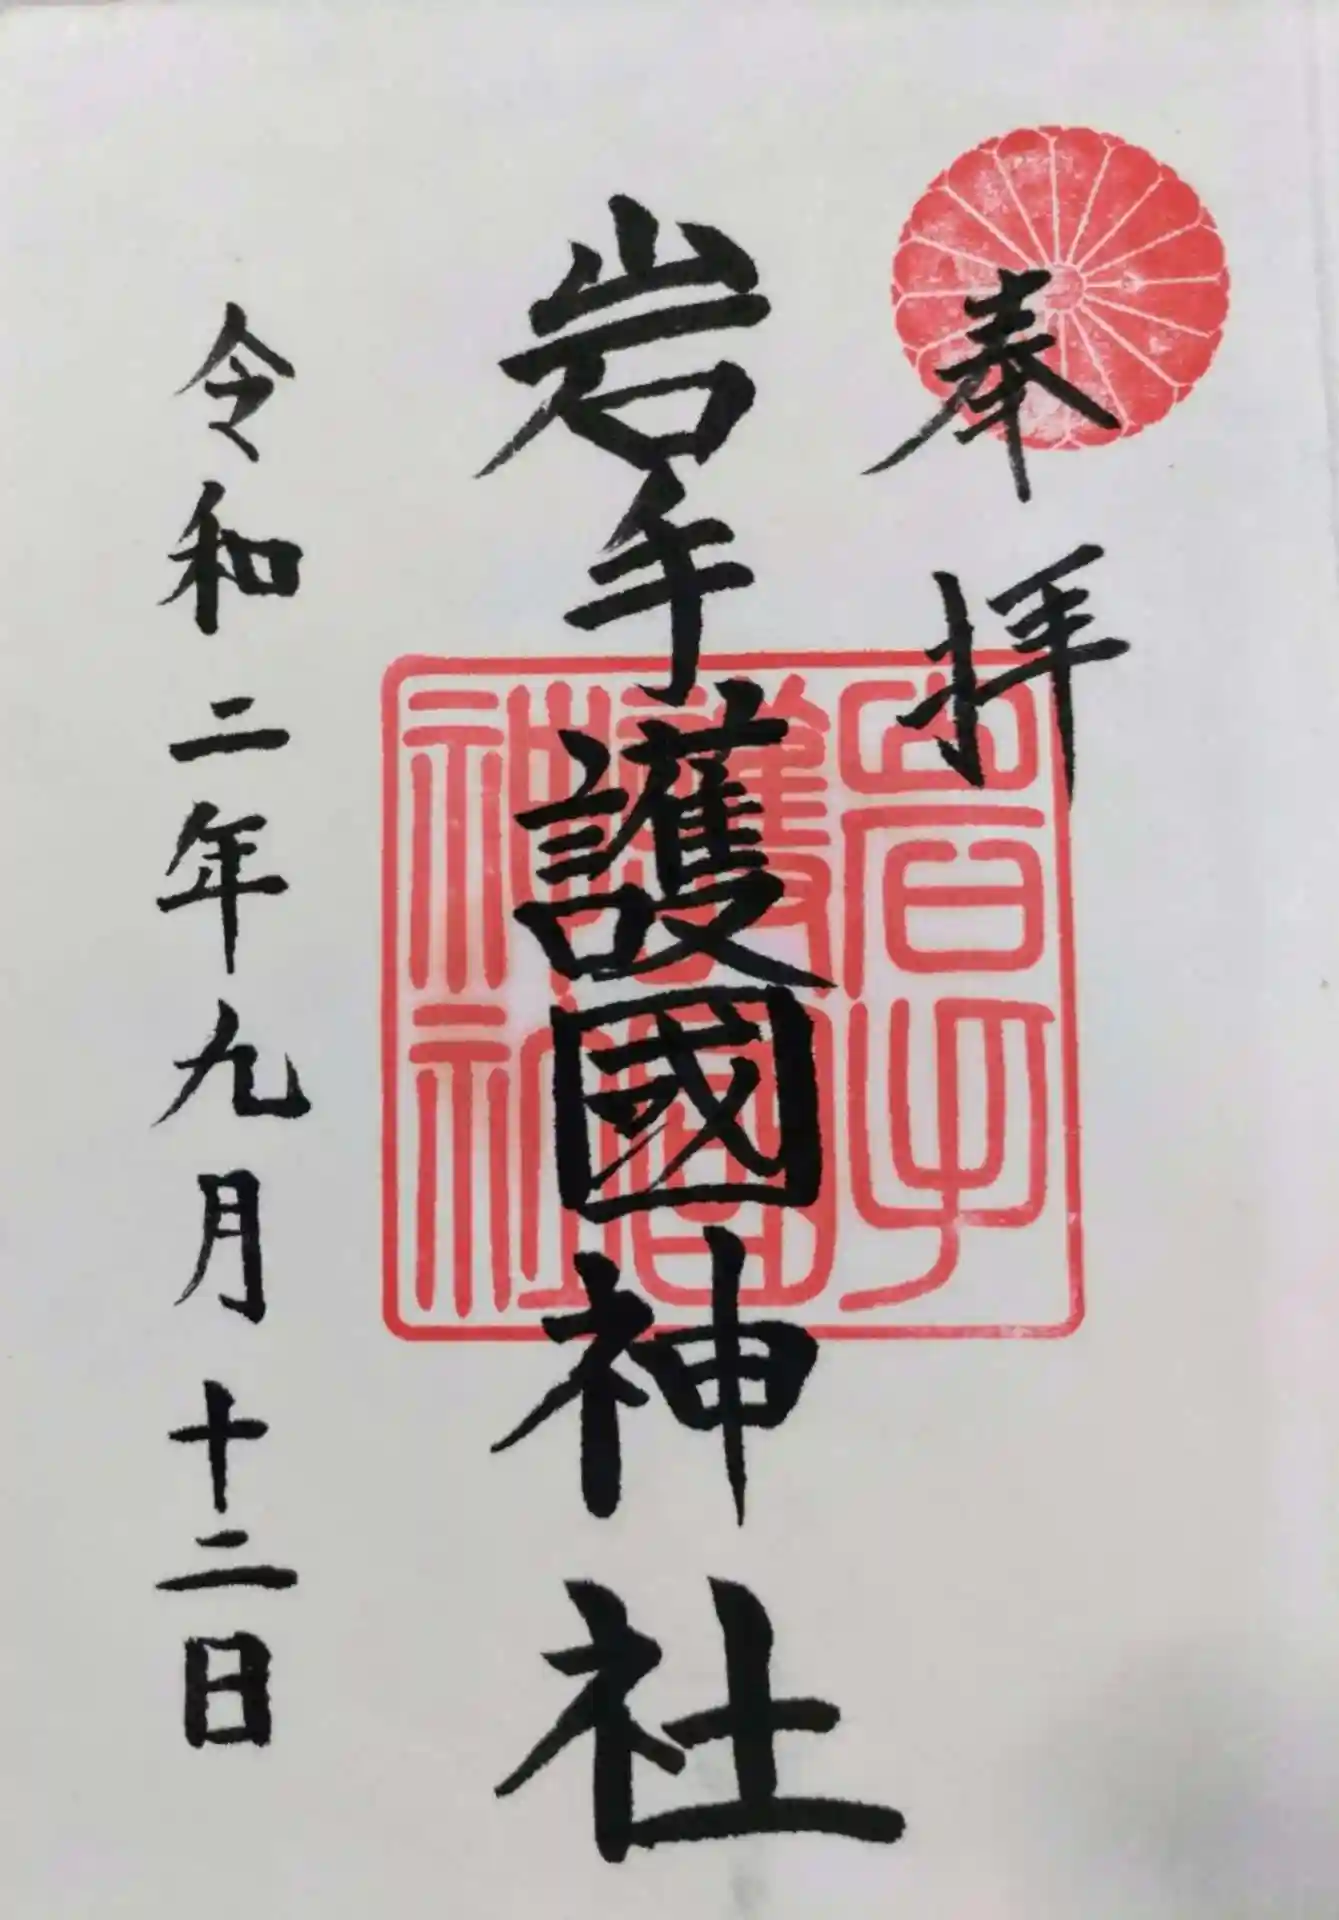 奉拝
岩手護國神社
令和二年九月十二日
岩手
護国
神社